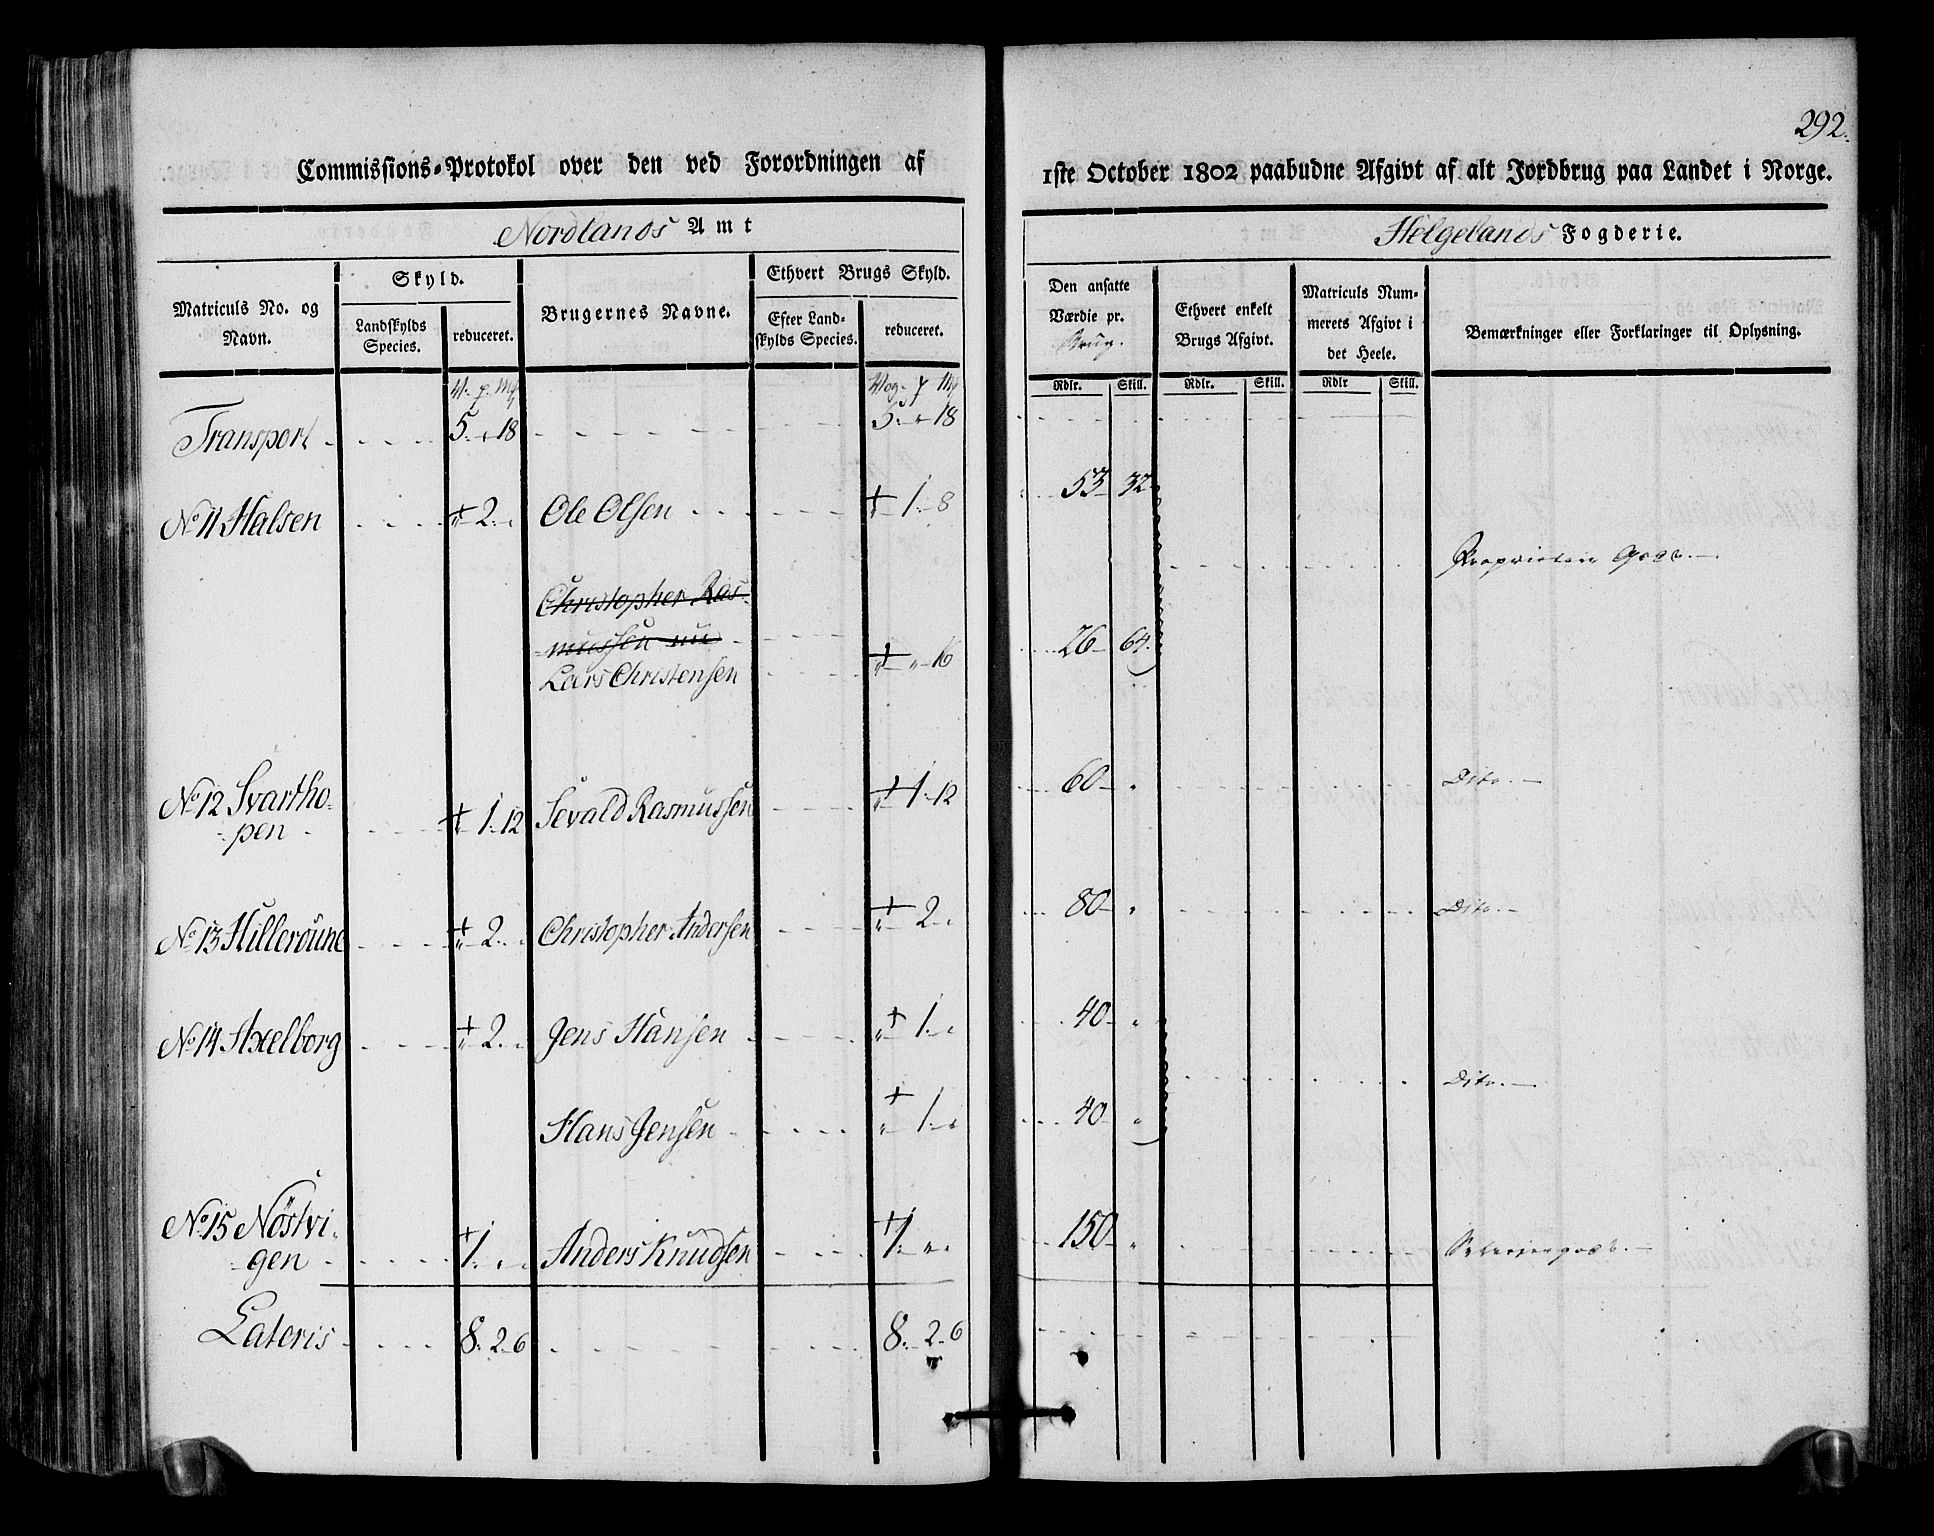 292.
Commissions-Protokol over den ved Forordningen af 1ste October 1802 paabudne Afgivt af alt Jordbrug paa Landet i Norge.
Nordlands Amt Helgelands Fogderie.
Matriculs No. og Navn.
Skyld.
Landskylds Species.
reduceret.
Brugernes Navne.
Ethvert Brugs Skyld.
Efter Landskylds Species.
reduceret.
Den ansatte Værdie pr. Brug.
Rdlr. Skill.
Ethvert enkelt Brugs Afgivt.
Rdlr. Skill.
Matriculs Nummerets Afgivt i det Heele.
Rdlr Skill.
Bemærkninger eller Forklaringer til Oplysning.
V. p. Mk Vog. p Mk
Transport 5. „ 18 5. „ 18
No 11 Halsen „ 2. „ Ole Olsen „ 1. 8 53 32
Proprietair Gods.
Christopher Ras-
mussen nu
Lars Christensen „ „ 16 26 64.
No 12 Svartho-
pen „ 1. 12 Sevald Rasmussen „ 1. 12 60 „ Dito.
No 13 Hilleroune „ 2. „ Christopher Andersen „ 2. „ 80 „ Dito.
No 14 Axelborg „ 2. „ Jens Hansen „ 1. „ 40 „
Dito.
Hans Jensen „ 1. „ 40 „
No 15 Nöstvi-
gen 1. „ „ Anders Knudsen 1. „ „ 150 „
Lateris 8. 2. 6 8. 2. 6